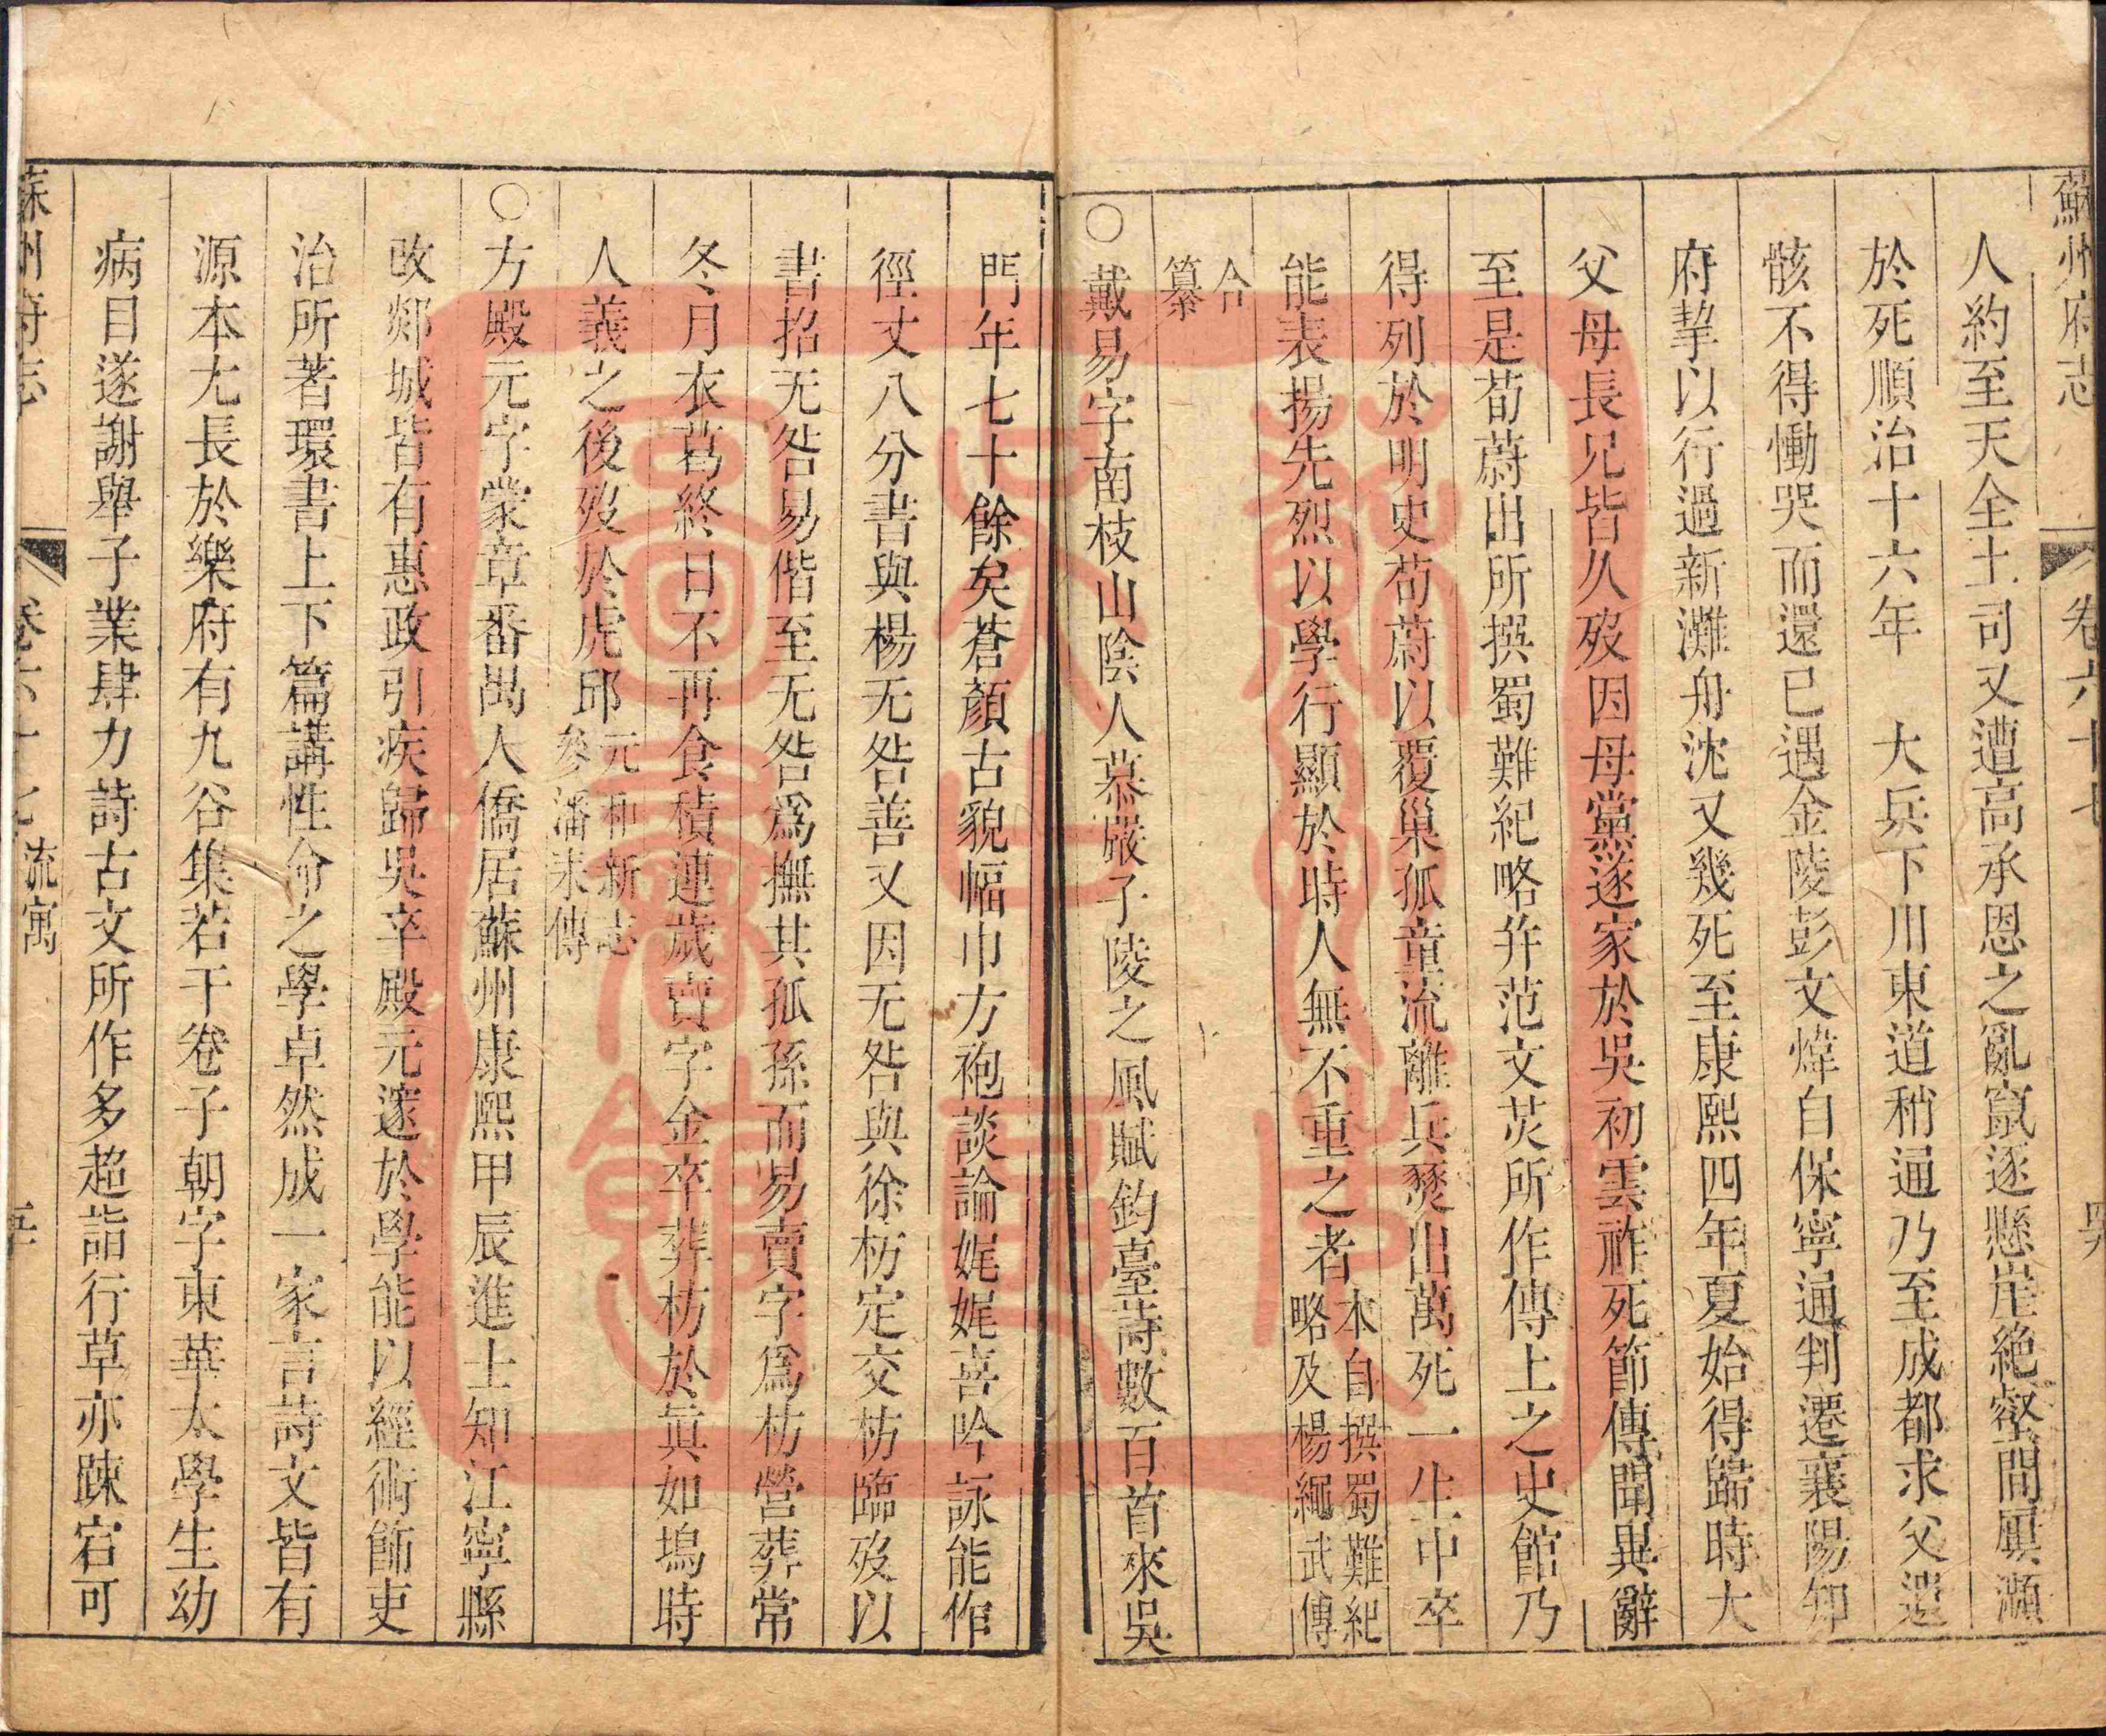 蘇州府志
卷六十七
人約至天全土司又遭高承恩之亂竄逐懸崖絕壑間屢瀕
於死順治十六年　大兵下川東道稍通乃至成都求父遺
骸不得慟哭而還已遇金陵彭文煒自保寧通判遷襄陽知
府挈以行過新灘舟沈又幾死至康熙四年夏始得歸時大
父母長兄皆久歿因母黨遂家於吳初雲祚死節傳聞異辭
至是荀蔚出所撰蜀難紀略并范文茨所作傳上之史館乃
得列於明史荀蔚以覆巢孤童流離兵燹出萬死一生中卒
能表揚先烈以學行顯於時人無不重之者本自撰蜀難紀
略及楊繩武傳
合
纂
○戴易字南枝山陰人慕嚴子陵之風賦釣臺詩數百首來吳
門年七十餘矣蒼顏古貌幅巾方袍談論娓娓喜吟詠能作
徑丈八分書與楊无咎善又因无咎與徐枋定交枋臨歿以
書招无咎易偕至无咎爲撫其孤孫而易賣字爲枋營葬常
冬月衣葛終日不再食積連歲賣字金卒葬枋於眞如塢時
人義之後歿於虎邱元和新志
參潘耒傳
○方殿元字蒙章番禺人僑居蘇州康熙甲辰進士知江寧縣
改郯城皆有惠政引疾歸吳卒殿元邃於學能以經術飾吏
治所著環書上下篇講性命之學卓然成一家言詩文皆有
源本尤長於樂府有九谷集若干卷子朝字東華太學生幼
病目遂謝舉子業肆力詩古文所作多超詣行草亦踈宕可
蘇州府志
卷六十七
流寓